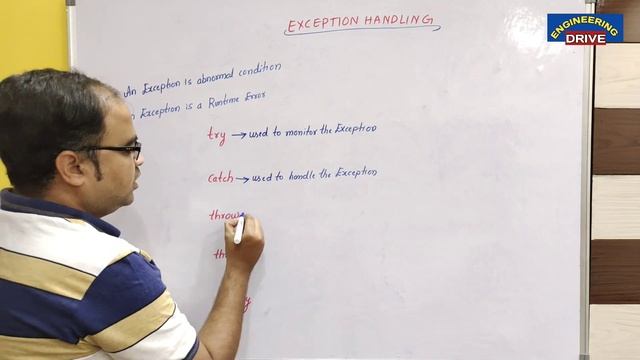 EXCEPTION HANDLING
ENGINEERING
DRIVE
An Exception is abnormal condition
Exception is a Runtime Error
try → used to monitor the Exception
catch → used to handle the Exception
throw